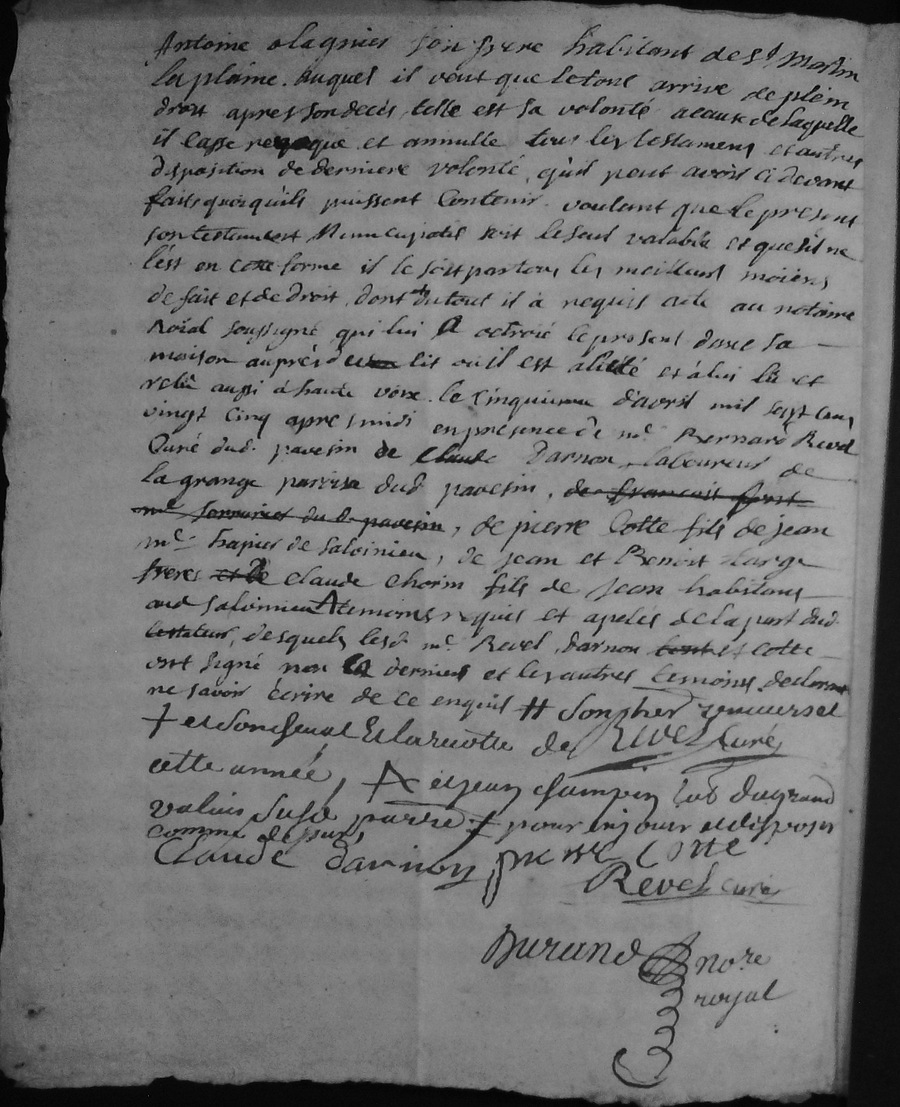 Antoine olagnier son frere habitant de St Martin
la plaine. auquel il veut que le tout arrive de plein
droit apres son deces, telle est sa volonté a cause de laquelle
il casse revoque et annulle tous les testamens et autres
disposition de derniere volonté, qu'il peut avoir ci devant
faits quoiqu'ils puissent contenir. voulant que le present
son testament Nuncupatif soit le seul valable et que s'il ne
l'est en cette forme il le soit par tous les meilleurs moiens
de fait et de droit, dont du tout il à requis acte au notaire
Roial soussigné qui lui a octroié le present dans sa
maison auprés du lit ou il est alicté et à lui lû et
relû aussi à haute voix. le cinquieme d'avril mil sept cens
vingt cinq apres midi en presence de me Bernard Revel
Curé dud. pavesin de Claude Darnon laboureur de
la grange parroisse dud. pavesin, de francois font
me serrurier du d. pavesin, de pierre Cotte fils de jean
me de saloinieu, de jean et Benoit
freres et de Claude Chorin fils de jean habitans
aud saloinieu A temoins requis et apelés de la part dud.
testateur, desquels lesd. me Revel, darnon et Cotte
ont signé non la derniers et les autres temoins declarant
ne savoir écrire de ce enquis # son her. universel
+ et de Revel Curé
cette année, A et jean champin du grand
valuis susd. parre. + pour en jouir et disposer
comme dessus,
Claude darnon pierre Cotte
Revel curé
Durand nore
royal